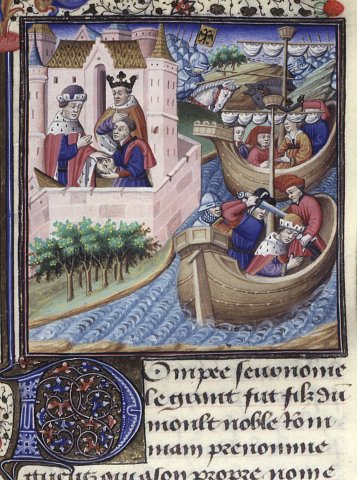 Pompee seurnome
le grant fut filz du
moult noble Rom
main prenomme
son propre nome